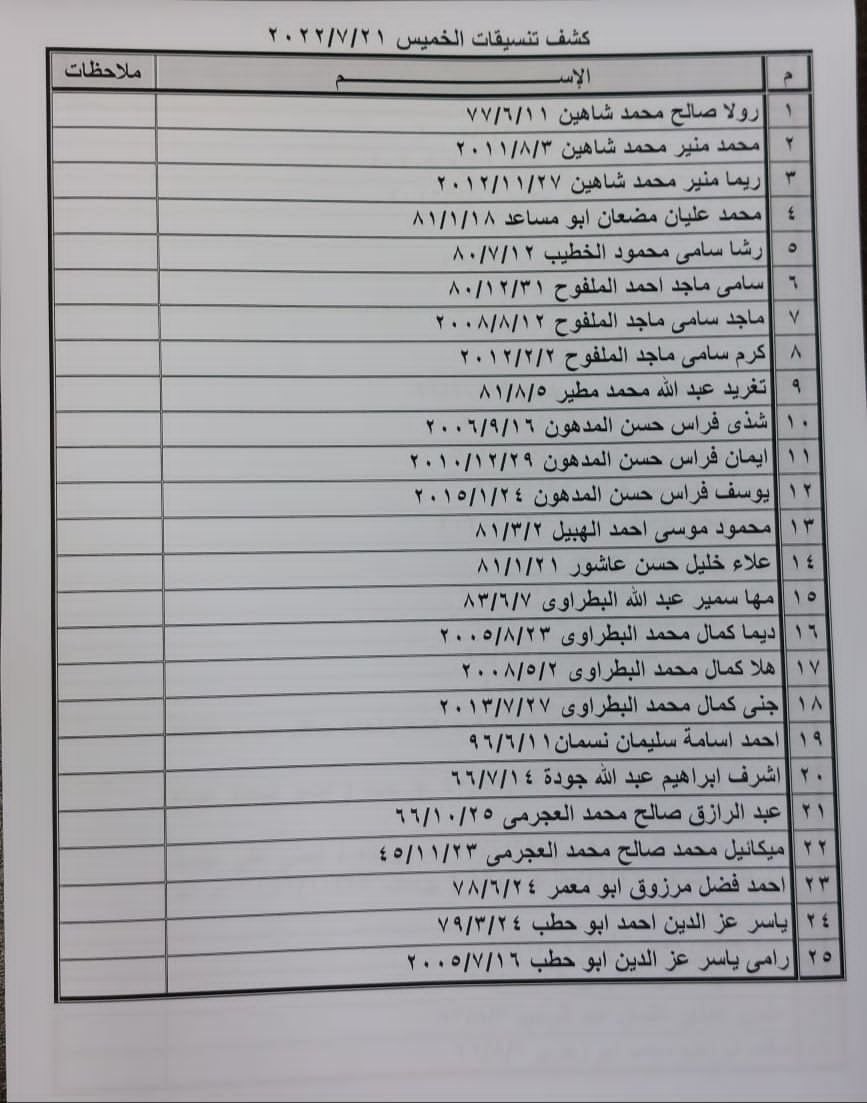 كشف تنسيقات الخميس ٢٠٢٢/٧/٢١
م الإســـــــــــم ملاحظات
١ رولا صالح محمد شاهين ٧٧/٦/١١
٢ محمد منير محمد شاهين ٢٠١١/٨/٣
٣ ريما منير محمد شاهين ٢٠١٢/١١/٢٧
٤ محمد عليان مضعان ابو مساعد ٨١/١/١٨
٥ رشا سامى محمود الخطيب ٨٠/٧/١٢
٦ سامى ماجد احمد الملفوح ٨٠/١٢/٣١
٧ ماجد سامى ماجد الملفوح ٢٠٠٨/٨/١٢
٨ كرم سامى ماجد الملفوح ٢٠١٢/٢/٢
٩ تغريد عبد الله محمد مطير ٨١/٨/٥
١٠ شذى فراس حسن المدهون ٢٠٠٦/٩/١٦
١١ ايمان فراس حسن المدهون ٢٠١٠/١٢/٢٩
١٢ يوسف فراس حسن المدهون ٢٠١٥/١/٢٤
١٣ محمود موسى احمد الهبيل ٨١/٣/٢
١٤ علاء خليل حسن عاشور ٨١/١/٢١
١٥ مها سمير عبد الله البطراوى ٨٣/٦/٧
١٦ ديما كمال محمد البطراوى ٢٠٠٥/٨/٢٣
١٧ هلا كمال محمد البطراوى ٢٠٠٨/٥/٢
١٨ جنى كمال محمد البطراوى ٢٠١٣/٧/٢٧
١٩ احمد اسامة سليمان نسمان٩٦/٦/١١
٢٠ اشرف ابراهيم عبد الله جودة ٦٦/٧/١٤
٢١ عبد الرازق صالح محمد العجرمى ٦٦/١٠/٢٥
٢٢ ميكائيل محمد صالح محمد العجرمى ٤٥/١١/٢٣
٢٣ احمد فضل مرزوق ابو معمر ٧٨/٦/٢٤
٢٤ ياسر عز الدين احمد ابو حطب ٧٩/٣/٢٤
٢٥ رامى ياسر عز الدين ابو حطب ٢٠٠٥/٧/١٦